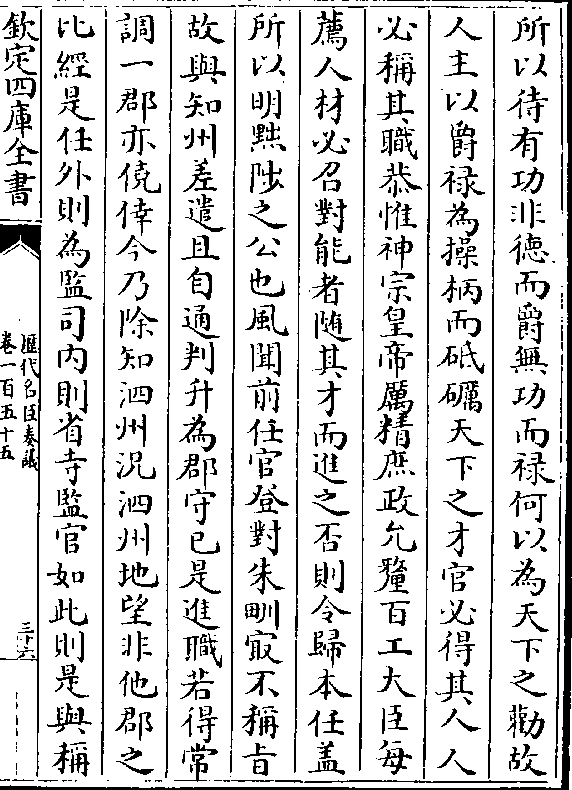 所以待有功非德而爵無功而禄何以為天下之勸故
人主以爵禄為操柄而砥礪天下之才官必得其人人
必稱其職恭惟神宗皇帝厲精庶政允釐百工大臣每
薦人材必召對能者随其才而進之否則令歸本任盖
所以明黜陟之公也風聞前任官登對朱㽦㝡不稱㫖
故與知州差遣且自通判升為郡守已是進職若得常
調一郡亦僥倖今乃除知泗州况泗州地望非他郡之
比經是任外則為監司内則省寺監官如此則是與稱
欽定四庫全書
歴代名臣奏議
卷一百五十五
三十六